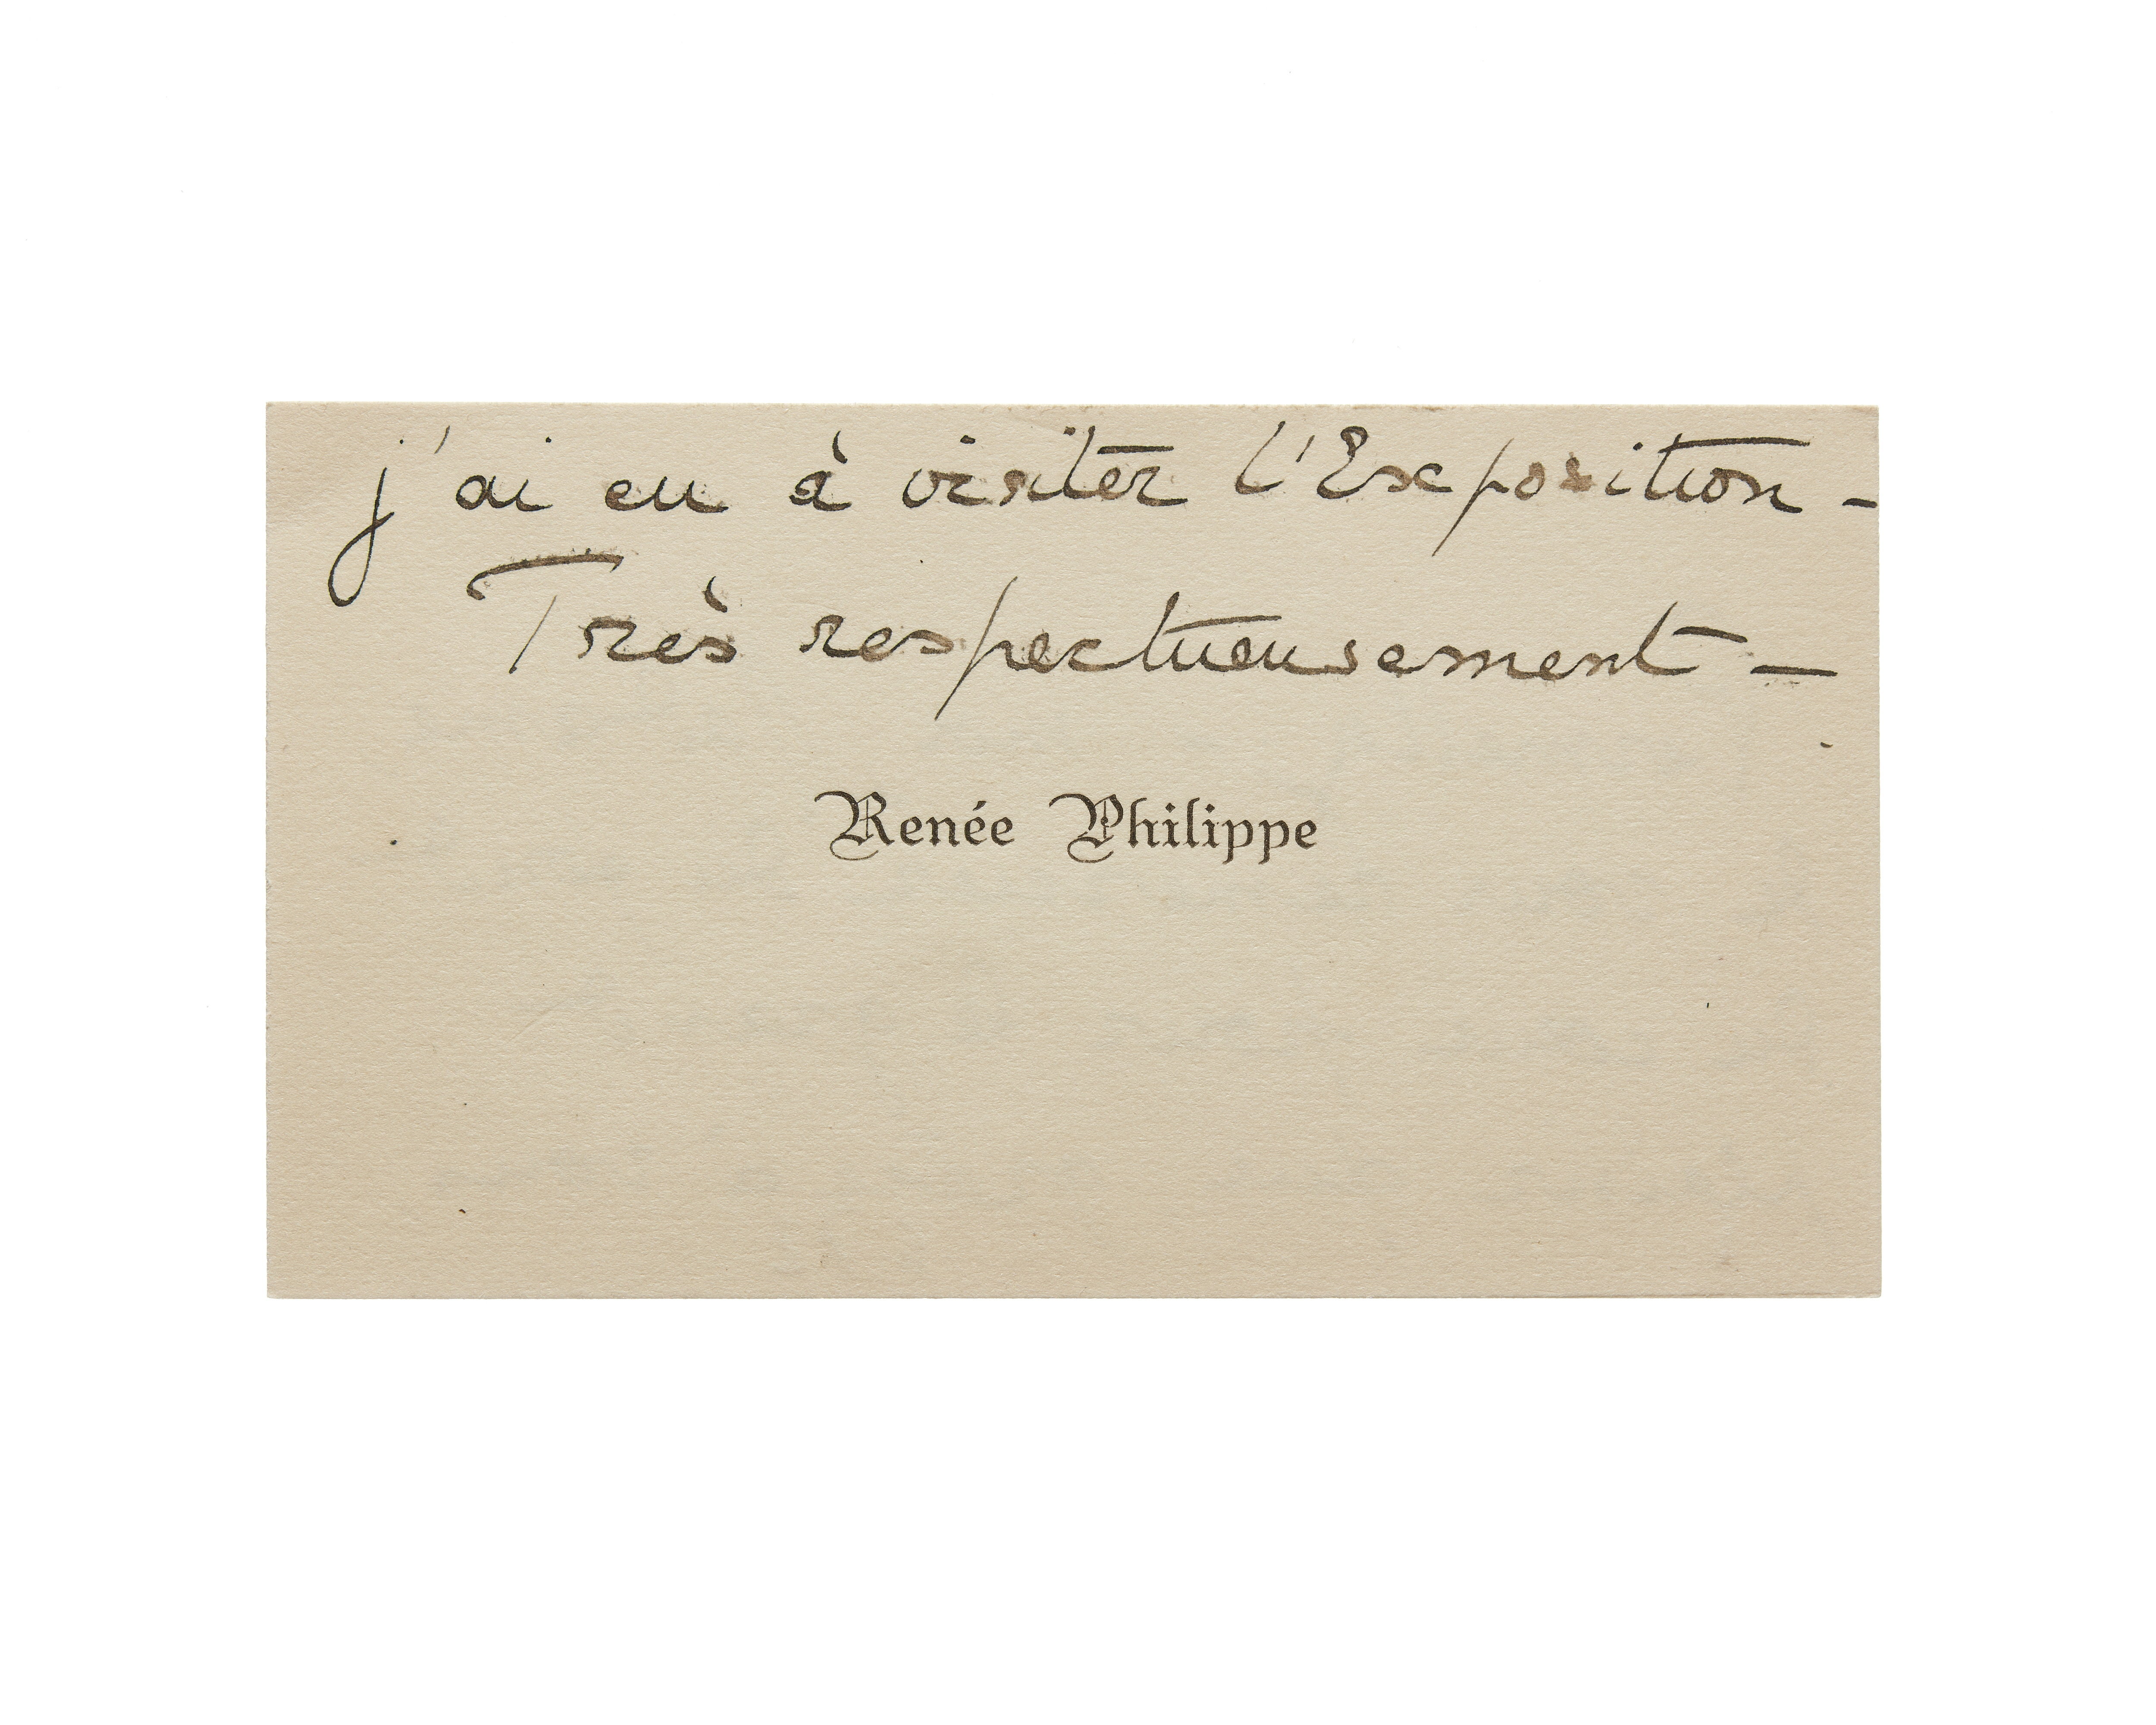 j'ai eu à visiter l'Exposition -
Très respectueusement -
Renée Philippe